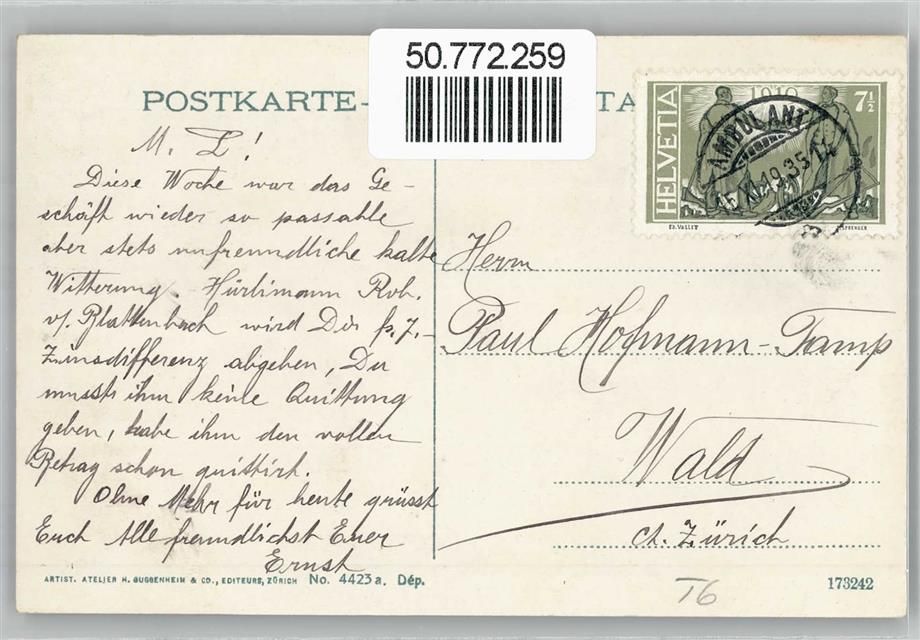 50.772.259
POSTKARTE-
TA
1919
HELVETIA
7½
AMBULANT
XI.19.35
ED. VALLET
SPRENGER
M. L!
Diese Woche war das Ge-
schäft wieder so passable
aber stets unfreundliche kalte
Witterung. Hürlimann Rob.
v/. Blattenbach wird Dir fr. 7.-
Zinsdifferenz abgeben, Du
musst ihm keine Quittung
geben, habe ihm den vollen
Betrag schon quittirt.
Ohne Mehr für heute grüsst
Euch Alle freundlichst Euer
Ernst
Herrn
Paul Hofmann-Tamp
Wald
ct. Zürich
ARTIST. ATELIER H. GUGGENHEIM & CO., EDITEURS, ZÜRICH No. 4423a. Dép.
T6
173242